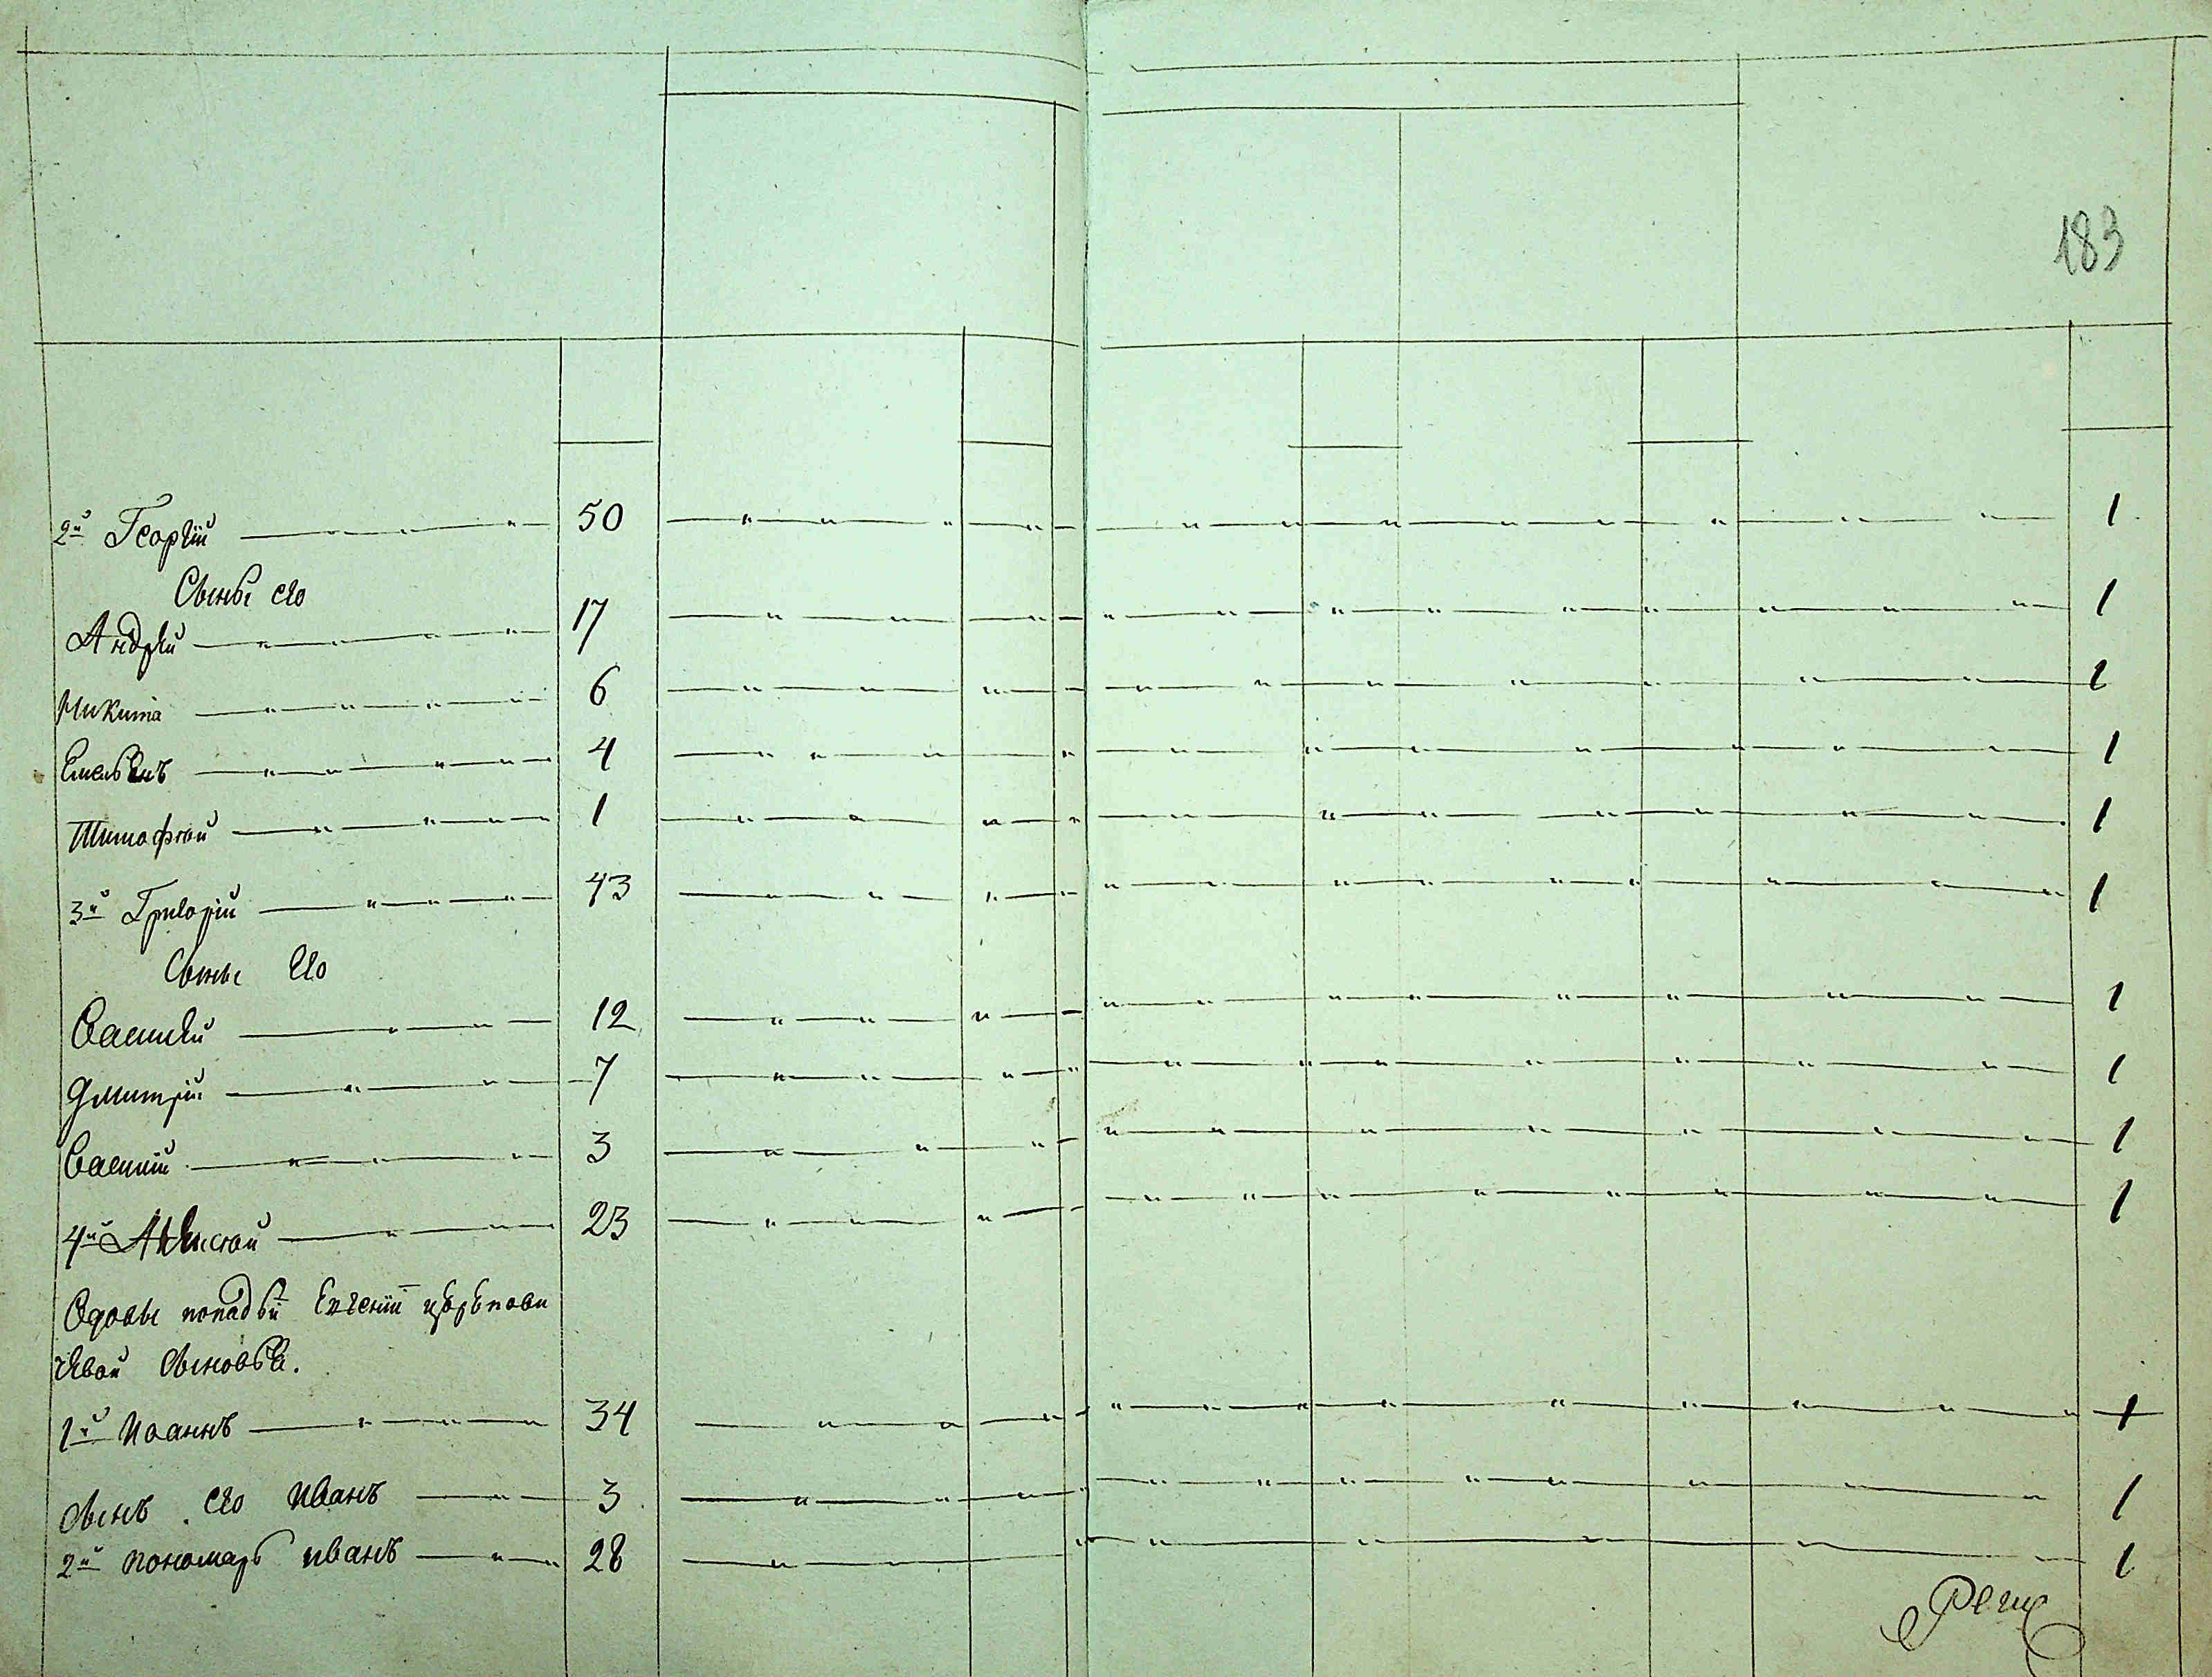 183
2й Георгій 50 1
Сыны его
Андрей 17 1
Никита 6 1
Емельянъ 4 1
Тимофей 1 1
3й Григорій 43 1
Сыны его
Василей 12 1
Дмитрій 7 1
Василій 3 1
4й Алексей 23 1
Вдовы попадьи
сыновья.
1й Иоаннъ 34 1
сынъ его Иванъ 3 1
2й пономарь иванъ 28 1